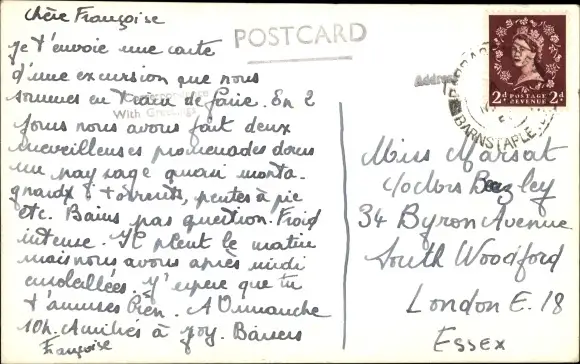 Chère Françoise
Je t'envoie une carte
d'une excursion que nous
sommes en train de faire. En 2
jours nous avons fait deux
merveilleuses promenades dans
un paysage quasi monta-
gnard & torrents, pentes à pic
etc. Bains pas question. Froid
intense. Il pleut le matin
mais nous avons après midi
ensoleillées. J'espère que tu
t'amuses bien. A Dimanche
10h. Amitiés à Joy. Baisers
Françoise
POSTCARD
Address
With Greetings
2d POSTAGE REVENUE 2d
BARNSTAPLE
Miss Marsat
c/o Mrs Bazley
34 Byron Avenue
South Woodford
London E.18
Essex